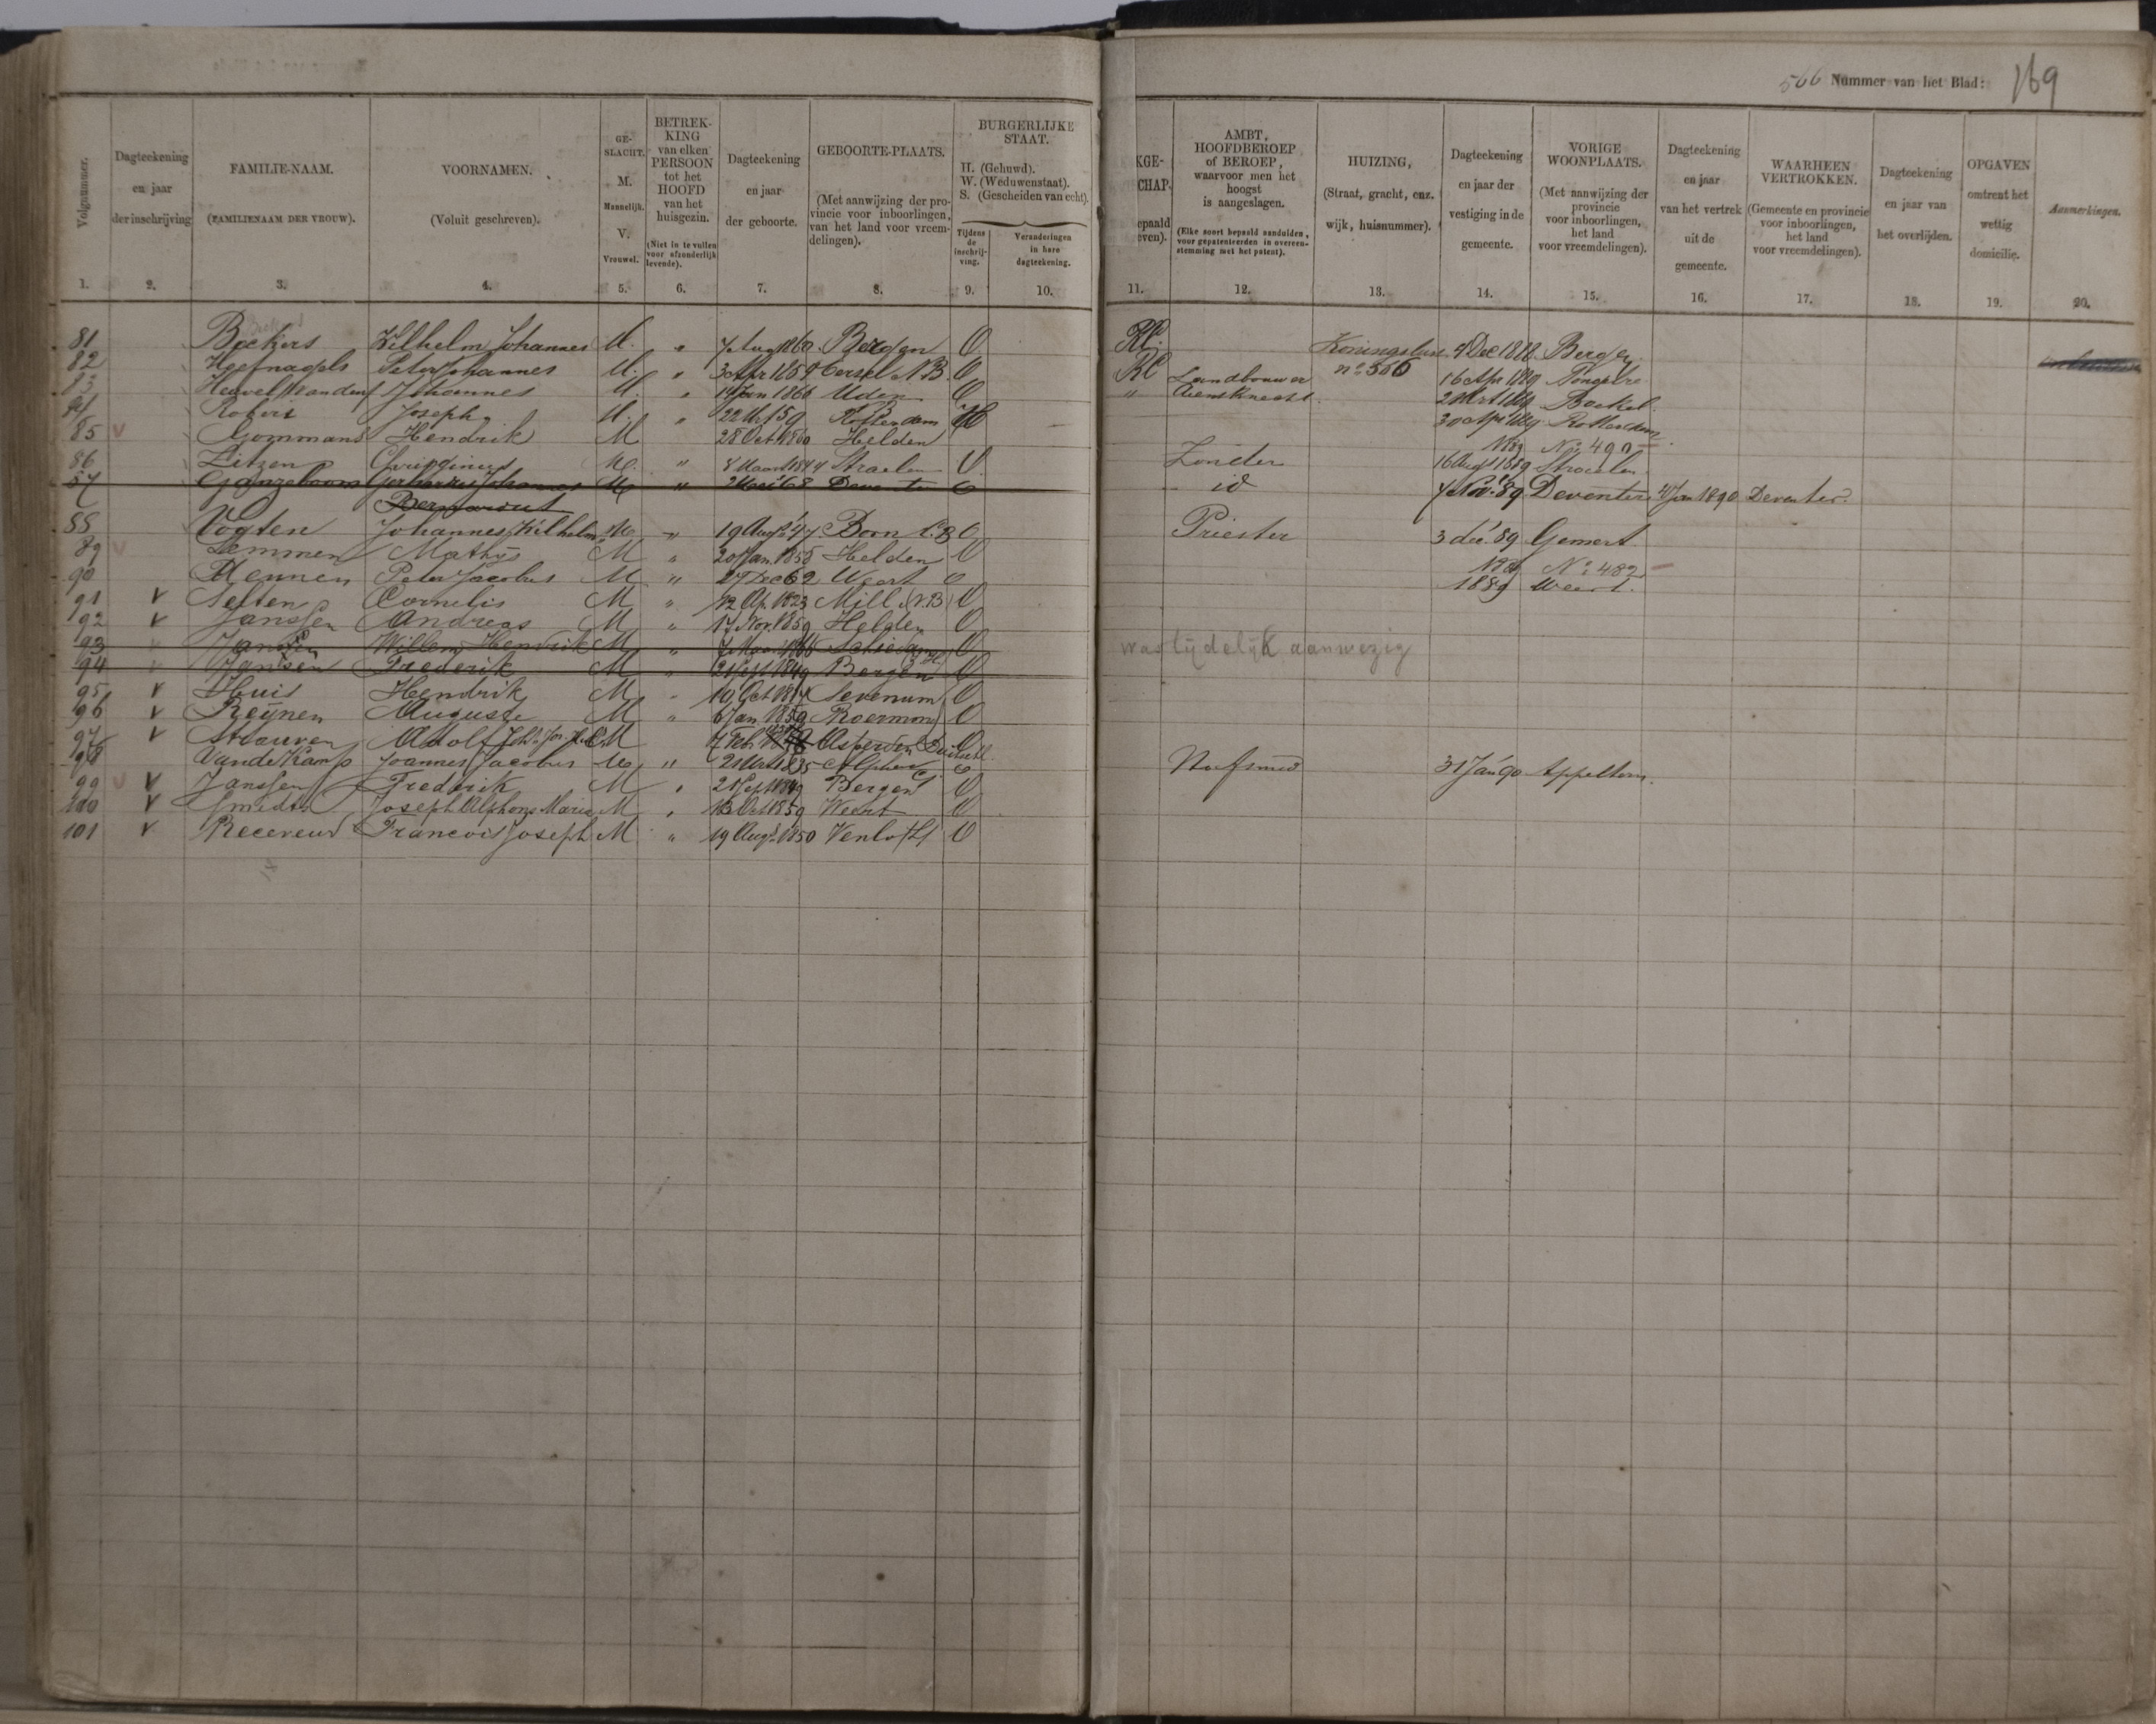 566 Nummer van het Blad: 169
Volgnummer. Dagteekening en jaar der inschrijving FAMILIE-NAAM. (FAMILIENAAM DER VROUW). VOORNAMEN. (Voluit geschreven). GESLACHT. M. Mannelijk. V. Vrouwel. BETREKKING van elken PERSOON tot het HOOFD van het huisgezin. (Niet in te vullen voor afzonderlijk levende). Dagteekening en jaar der geboorte. GEBOORTE-PLAATS. (Met aanwijzing der provincie voor inboorlingen, van het land voor vreemdelingen). BURGERLIJKE STAAT. H. (Gehuwd). W. (Weduwenstaat). S. (Gescheiden van echt). Tijdens de inschrijving. Veranderingen in here dagteekening.
KGE- CHAP. epaald even). AMBT, HOOFDBEROEP of BEROEP, waarvoor men het hoogst is aangeslagen. (Elke soort bepaald aanduiden, voor gepatenteerden in overeenstemming met het patent). HUIZING, (Straat, gracht, enz. wijk, huisnummer). Dagteekening en jaar der vestiging in de gemeente. VORIGE WOONPLAATS. (Met aanwijzing der provincie voor inboorlingen, het land voor vreemdelingen). Dagteekening en jaar van het vertrek uit de gemeente. WAARHEEN VERTROKKEN. (Gemeente en provincie voor inboorlingen, het land voor vreemdelingen). Dagteekening en jaar van het overlijden. OPGAVEN omtrent het wettig domicilie. Aanmerkingen.
1. 2. 3. 4. 5. 6. 7. 8. 9. 10. 11. 12. 13. 14. 15. 16. 17. 18. 19. 20.
81 Beckers Wilhelm Johannes M. " 7 Aug 1860. Bergen O RC. 4 Dec 1888. Bergen
82 Hoefnagels Peter Johannes M. " 3 Apr 185 Oersel N.B. O RC Landbouwer no 566 16 Apr 1889
83 Heuvel (van den) Johannes M. " 14 Jan 1860 Uden O " dienstknecht 1889 Boekel.
84 Robert Joseph M. " 22 59 Rotterdam 30 Apr 1889 Rotterdam
85 v Gommans Hendrik M 28 Oct 1860 Helden 1889 No 490
86 Litzen M. " 8 Maart 1844 Straelen O. Zonder 16 Aug 1889 Straelen
87 Ganzeboom Gerhardus Johannes M " 2 Mei 68 Deventer O id 7 Nov. 89 Deventer Jan 1890 Deventer.
Bernardus
88 Vogten Johannes Wilhelm M. " 19 Aug 47 Born L.B O Priester 3 dec. 89 Gemert
89 v Lemmen Mathijs M " 20 Jan. 1855 Helden O 1889 No 482
90 Hennen Peter Jacobus M " 27 Dec 62 Weert O 1889 Weert.
91 v Selten Cornelis M " 12 Ap. 1823 Mill (N.B) O
92 v Janssen Andreas M " 17 Nov. 1859 Helden O
93 Jansen Willem Hendrik M " 7 Maart Schiedam O was tijdelijk aanwezig
94 Jansen Frederik M " 21 Sept 1849 Bergen O
95 v Huis Hendrik M " 10 Oct Sevenum O
96 v Reijnen Auguste M " 6 Jan. 1859 Roermond O
97 v Strauven Adolf M 7 Feb. Asperden O
98 Van de Kamp Joannes Jacobus M " 21 1835 Alphen O Hoefsmid 31 Jan 90 Appeltern.
99 v v Janssen Frederik M " 21 Sept 1849 Bergen O
100 v Smidts Joseph Alphons Marie M " 13 Oct 1859 Weert O
101 v Receveur Francois Joseph M " 19 Aug. 1850 Venlo (L) O